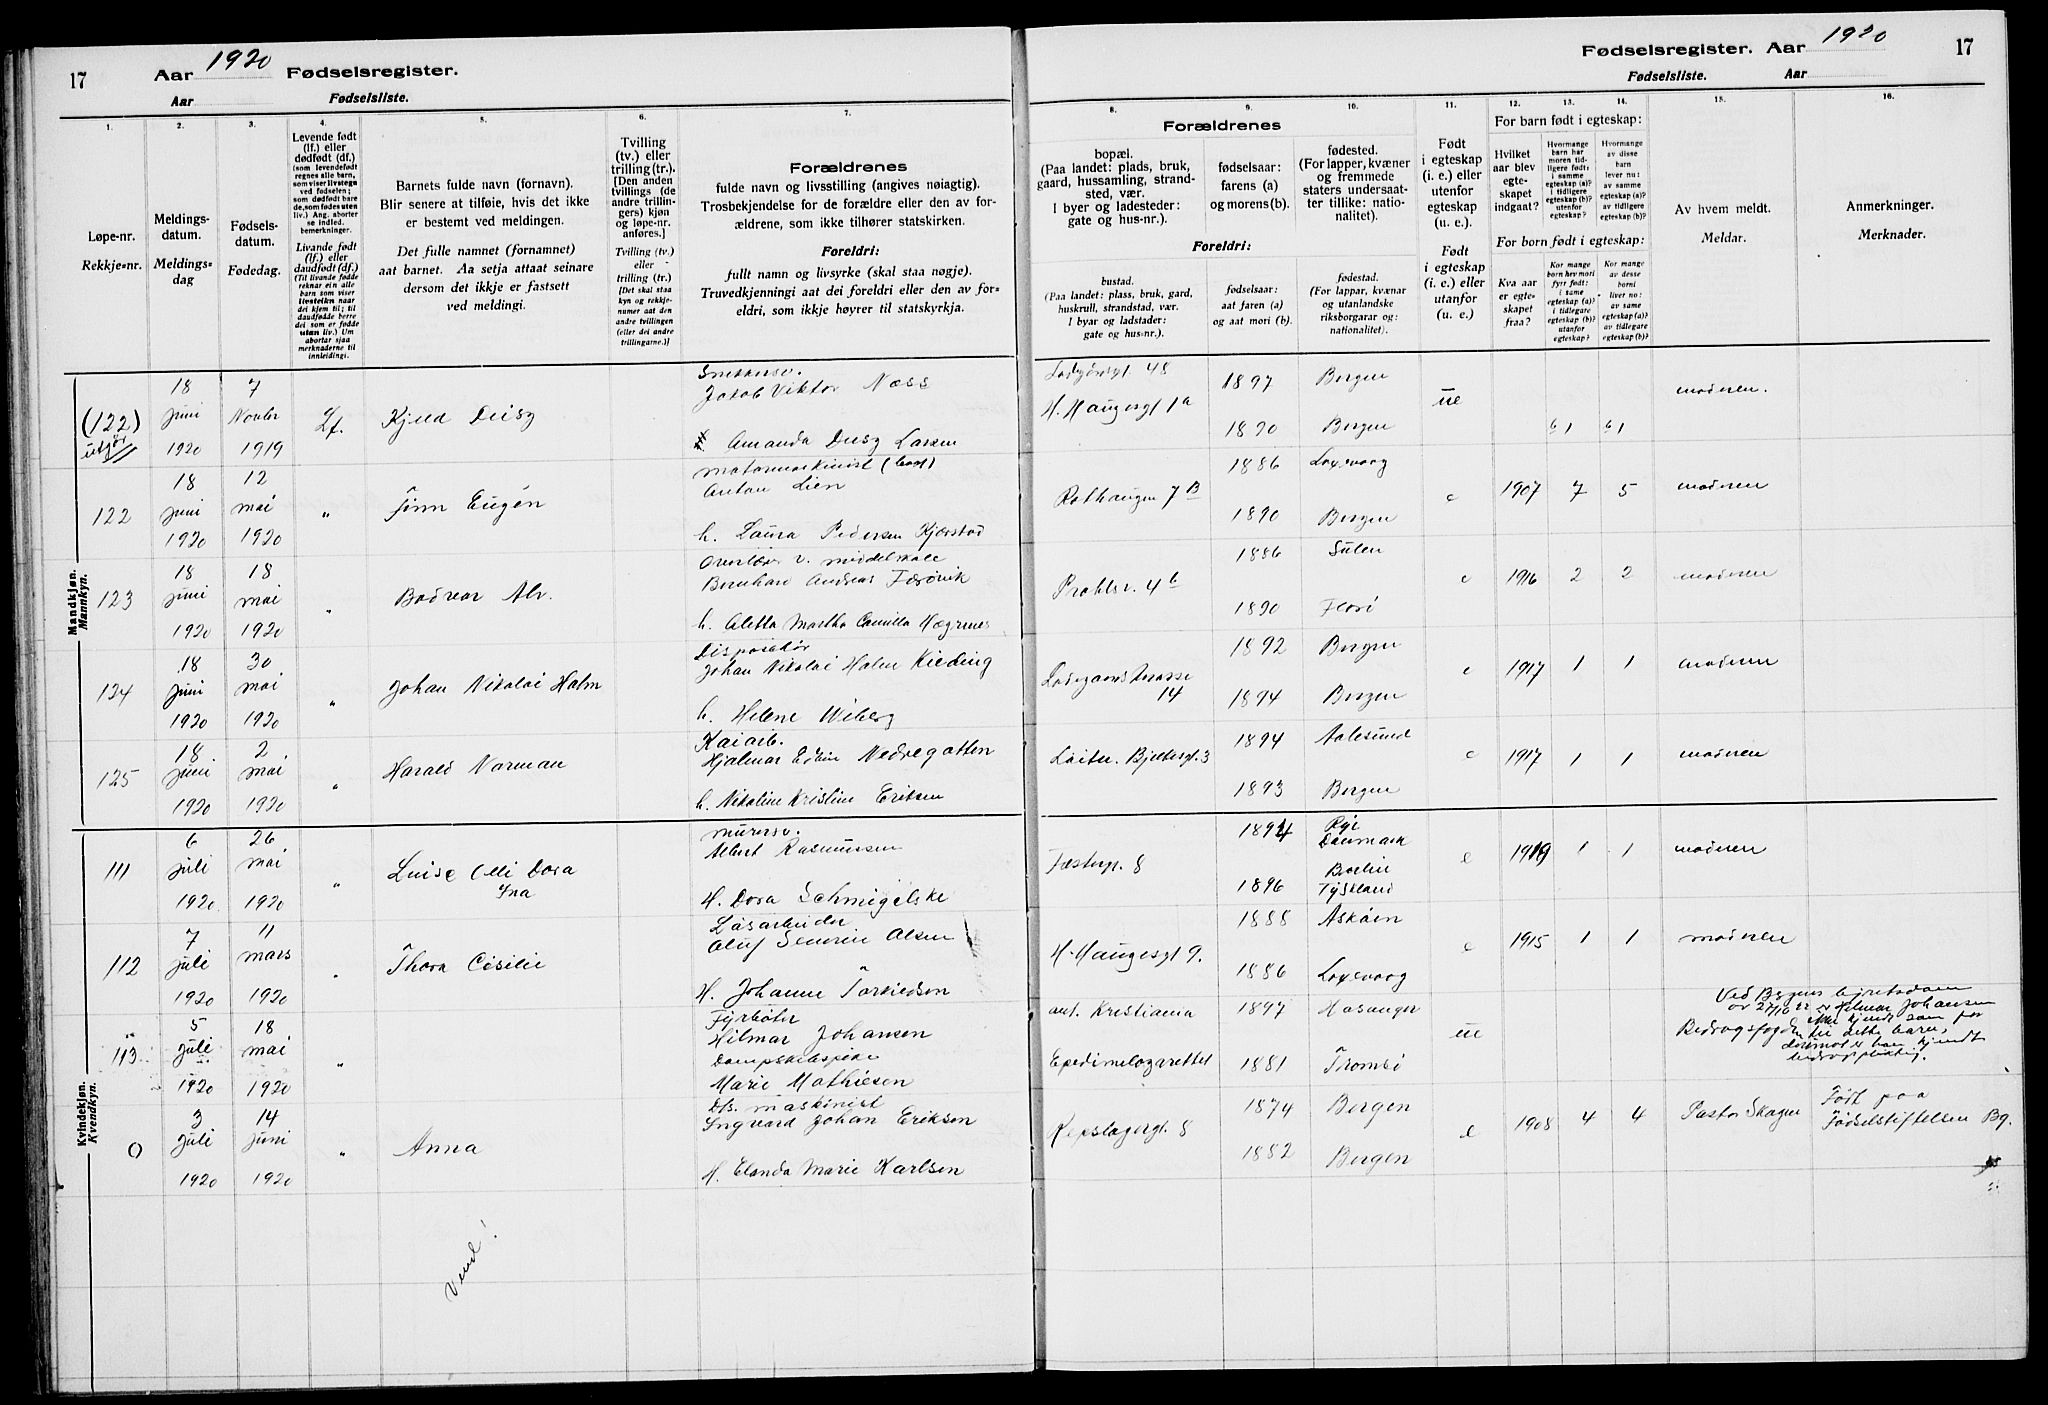 17
Aar 1920 Fødselsregister.
Aar Fødselsliste.
1.
2.
3.
4.
5.
6.
7.
Løpe-nr.
Rekkje-nr.
Meldings-
datum.
Meldings-
dag
Fødsels-
datum.
Fødedag.
Levende født
(lf.) eller
dødfødt (df.)
(som levendefødt
regnes alle barn,
som viser livstegn
ved fødselen;
som dødfødt bare
de, som fødes uten
liv.) Ang. aborter
se indled.
bemerkninger.
Livande født
(lf.) eller
daudfødt (df.)
(Til livande fødde
reknar ein alle
barn som viser
livsteikn naar
dei kjem til; til
daudfødde berre
dei som er fødde
utan liv.) Um
abortar sjaa
merknaderne til
innleidingi.
Barnets fulde navn (fornavn).
Blir senere at tilføie, hvis det ikke
er bestemt ved meldingen.
Det fulle namnet (fornamnet)
aat barnet. Aa setja attaat seinare
dersom det ikkje er fastsett
ved meldingi.
Tvilling
(tv.) eller
trilling (tr.).
[Den anden
tvillings (de
andre trillin-
gers) kjøn
og løpe-nr.
anføres.]
Tvilling (tv.)
eller
trilling (tr.)
[Det skal staa
kyn og rekkje-
numer aat den
andre tvillingen
(eller dei andre
trillingarne.)]
Forældrenes
fulde navn og livsstilling (angives nøiagtig).
Trosbekjendelse for de forældre eller den av for-
ældrene, som ikke tilhører statskirken.
Foreldri:
fullt namn og livsyrke (skal staa nøgje).
Truvedkjenningi aat dei foreldri eller den av for-
eldri, som ikkje høyrer til statskyrkja.
Mandkjøn.
Mannkyn.
(122)
utgjør
18
juni
1920
7
Novbr
1919
Lf.
Kjell Deisy
Snekkersv.
Jakob Viktor Næss
Amanda Deisy Larsen
122
18
juni
1920
12
mai
1920
"
Finn Eugén
motormaskinist
Anton Lien
h. Laura Pedersen Kjørstad
123
18
juni
1920
18
mai
1920
"
Bodvar Alv.
Overlær. v. middelskole
Bernhard Andreas Færøvik
h. Aletta Martha Camilla Hegrenes
124
18
juni
1920
30
mai
1920
"
Johan Nikolai Halm
Disponent
Johan Nikolai Halm Kieding
h. Helene Wiberg
125
18
juni
1920
2
mai
1920
"
Harald Norman
Kaiarb.
Hjalmar Edvin Nedregotten
h. Nikoline Kristine Eriksen
Kvindekjøn.
Kvendkyn.
111
6
juli
1920
26
mai
1920
"
Luise Elli Dora
Ina
murersv.
Albert Rasmussen
H. Dora Schmigelske
112
7
juli
1920
11
mars
1920
"
Thora Cesilie
Løsarbeider
Oluf Severin Olsen
H. Johanne Torkildsen
113
5
juli
1920
18
mai
1920
"
Fyrbøter
Hilmar Johansen
Dampskibspike
Marie Mathiesen
0
3
juli
1920
14
juni
1920
"
Anna
Dbs. maskinist
Ingvard Johan Eriksen
H. Elanda Marie Karlsen
Vend!
Fødselsregister. Aar 1920
17
Fødselsliste. Aar
8.
9.
10.
11.
12.
13.
14.
15.
16.
Forældrenes
bopæl.
(Paa landet: plads, bruk,
gaard, hussamling, strand-
sted, vær.
I byer og ladesteder:
gate og hus-nr.).
fødselsaar:
farens (a)
og morens (b).
fødested.
(For lapper, kvæner
og fremmede
staters undersaat-
ter tillike: natio-
nalitet).
Foreldri:
bustad.
(Paa landet: plass, bruk, gard,
huskrull, strandstad, vær.
I byar og ladstader:
gate og hus-nr.).
fødselsaar:
aat faren (a)
og aat mori (b).
fødestad.
(For lappar, kvænar
og utanlandske
riksborgarar og:
nationalitet).
Født
i egteskap
(i. e.) eller
utenfor
egteskap
(u. e.).
Født
i egteskap
(i. e.) eller
utanfor
(u. e.)
For barn født i egteskap:
Hvilket
aar blev
egte-
skapet
indgaat?
Hvormange
barn har
moren tid-
ligere født:
i samme
egteskap (a)?
i tidligere
egteskap (b)?
utenfor
egteskap?
Hvormange
av disse
barn
lever nu:
av samme
egteskap (a)?
av tidligere
egteskap (b)?
For born født i egteskap:
Kva aar
er egte-
skapet
fraa?
Kor mange
born hev mori
fyrr født:
i same
egteskap (a)?
i tidlegare
egteskap (b)?
utanfor
egteskap?
Kor mange
av desse
borni
liver no:
av same
egteskap (a)?
av tidlegare
egteskap (b)?
Av hvem meldt.
Meldar.
Anmerkninger.
Merknader.
Ladegårdsgt. 48
H. Haugesgt 1a
1897
1890
Bergen
Bergen
ue
b 1
b 1
moderen.
Rothaugen 7 B
1886
1890
Laxevaag
Bergen
e
1907
7
5
moderen
Prahlsv. 4 b
1886
1890
Sulen
Florø
e
1916
2
2
moderen
Ladegaardsterasse
14
1892
1894
Bergen
Bergen
e
1917
1
1
moderen
Løitn. Bjelkesgt. 3
1894
1893
Aalesund
Bergen
e
1917
1
1
moderen
Fæstergt. 8
1894
1896
Danmark
Berlin
Tyskland
e
1919
1
1
moderen
H. Haugesgt 9.
1888
1886
Askøen
Laxevaag
e
1915
1
1
moderen
ant. Kristiania
Epedimelazarettet
1897
1881
Hosanger
Tromsø
ue
Ved Bergens byretsdom
av 27/10 22 er Hilmar Johansen
ikke kjendt som far
til dette barn,
derimot er han kjendt
bidragspliktig.
Bidragsfogden
Repslagergt. 8
1874
1882
Bergen
Bergen
e
1908
4
4
Pastor Skagen
Født paa
Fødselstiftelsen Bg.